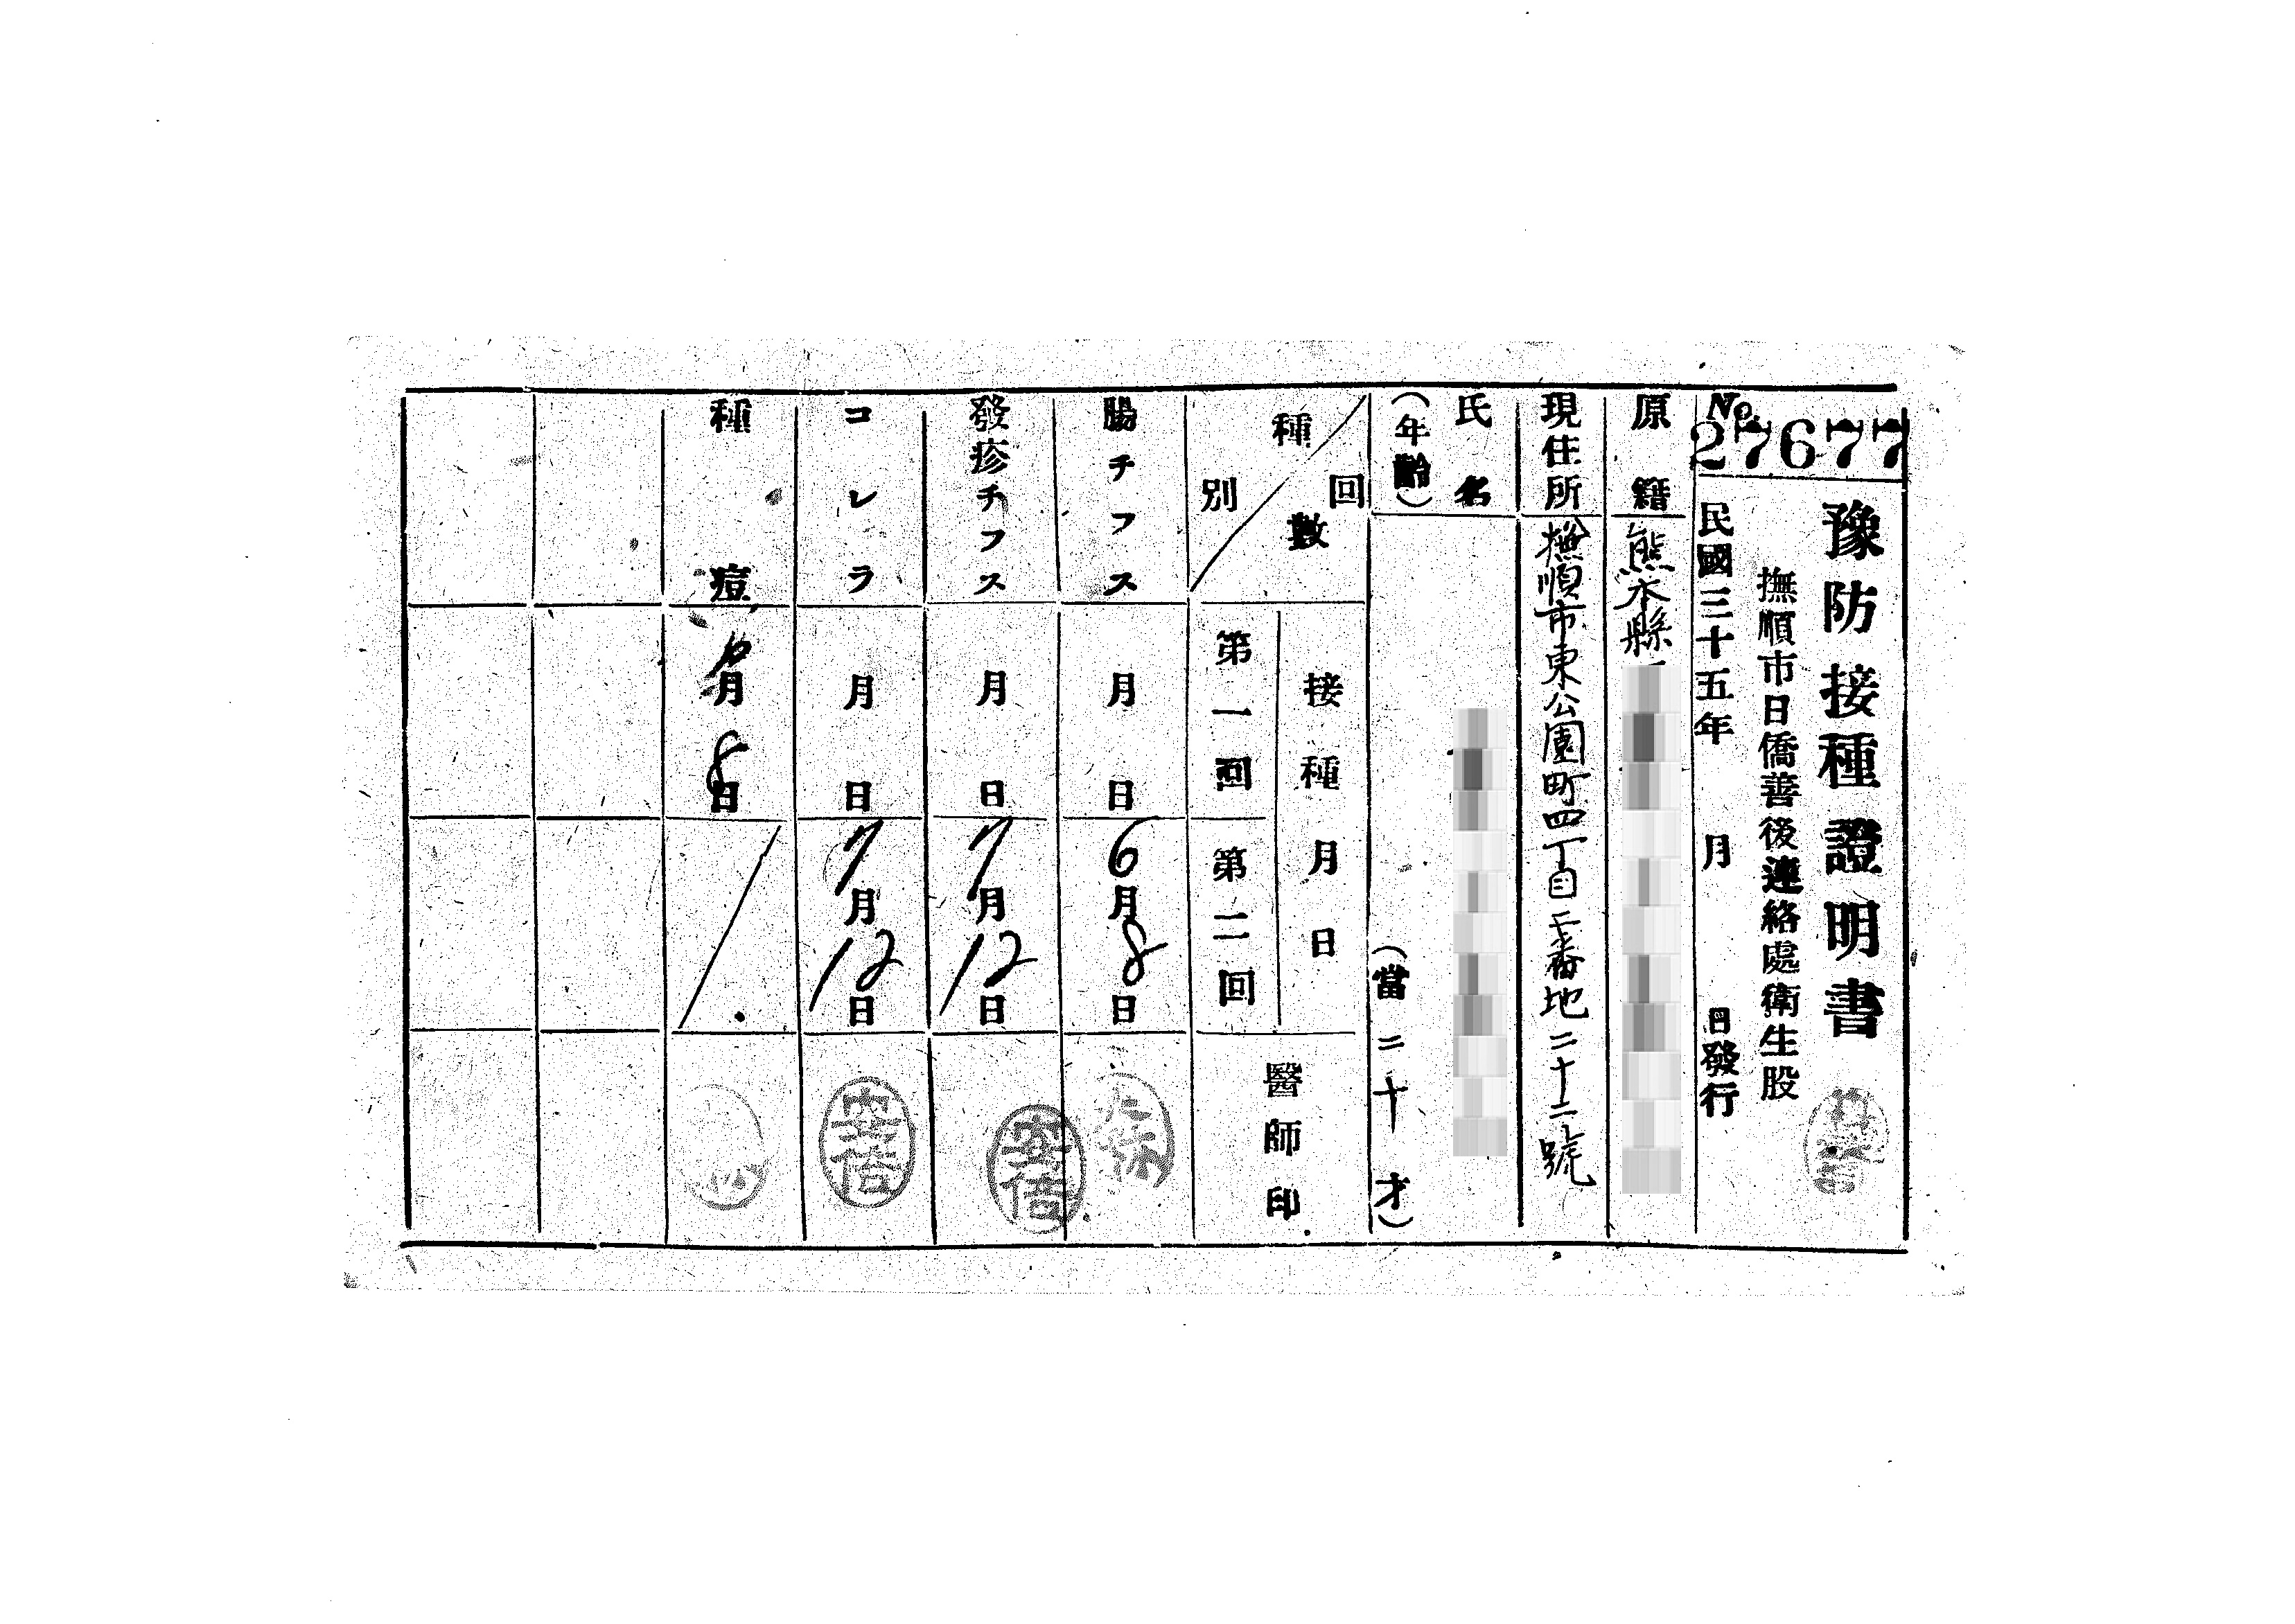 No. 27677
豫防接種證明書
撫順市日僑善後連絡處衛生股
民國三十五年 月 日發行
原籍 熊本縣
現住所 撫順市東公園町四丁目 番地二十二號
氏名
(年齡) (當二十才)
種別 回數
接種月日
第一回 第二回
醫師印
腸チフス 月 日 6月8日
發疹チフス 月 日 7月12日 安倍
コレラ 月 日 7月12日 安倍
種痘 月8日